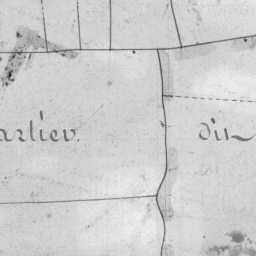 artier.
dit